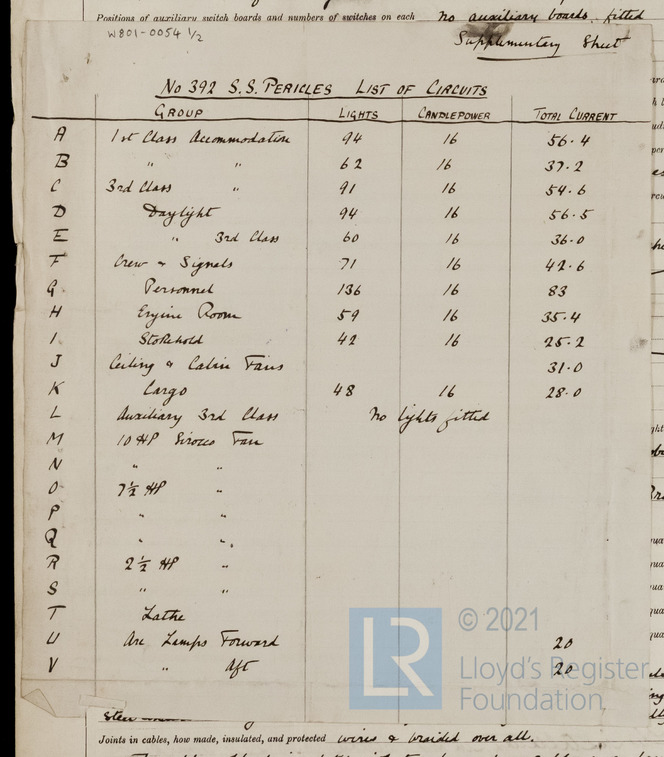 Positions of auxiliary switch boards and numbers of switches on each no auxiliary boards fitted
W801-0054 1/2
Supplementary Sheet
No 392 S.S. PERICLES LIST OF CIRCUITS
GROUP LIGHTS CANDLEPOWER TOTAL CURRENT
A 1st Class Accommodation 94 16 56.4
B " " 62 16 37.2
C 3rd Class " 91 16 54.6
D Daylight 94 16 56.5
E " 3rd Class 60 16 36.0
F Crew & Signals 71 16 42.6
G Personnel 136 16 83
H Engine Room 59 16 35.4
I Stokehold 42 16 25.2
J Ceiling & Cabin Fans 31.0
K Cargo 48 16 28.0
L Auxiliary 3rd Class No lights fitted
M 10 HP Sirocco Fan
N " "
O 7½ HP "
P " "
Q " "
R 2½ HP "
S " "
T Lathe
U Arc Lamps Forward 20
V " Aft 20
© 2021
LR Lloyd's Register
Foundation
Joints in cables, how made, insulated, and protected wires & braided over all.